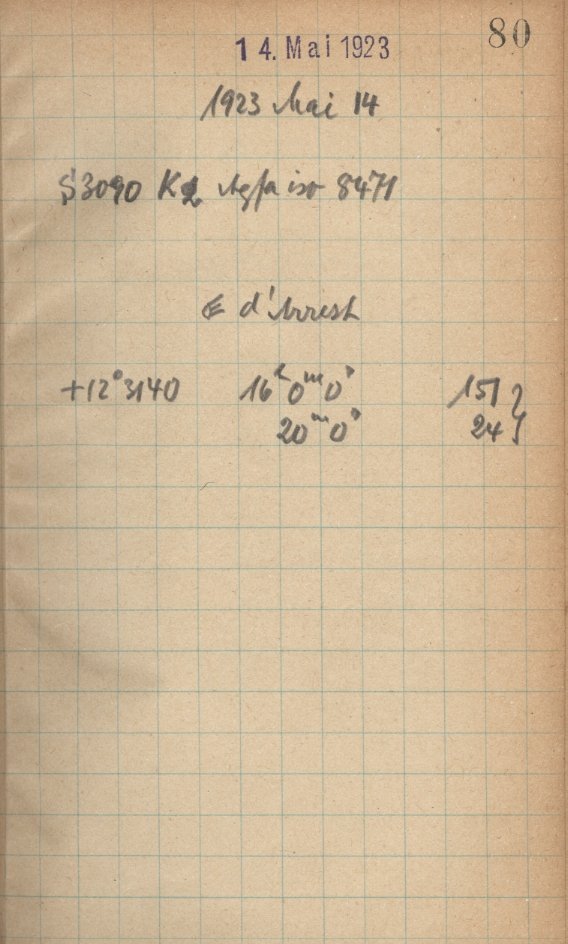 80
14. Mai 1923
1923 Mai 14
S3090 K2 Agfa iso 8471
E d'Arrest
+12°3140 16ʰ0ᵐ0ˢ 151
20ᵐ0ˢ 24